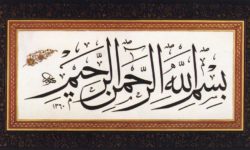 بِسْمِ اللهِ الرَّحْمٰنِ الرَّحِيْمِ
١٣٦٠